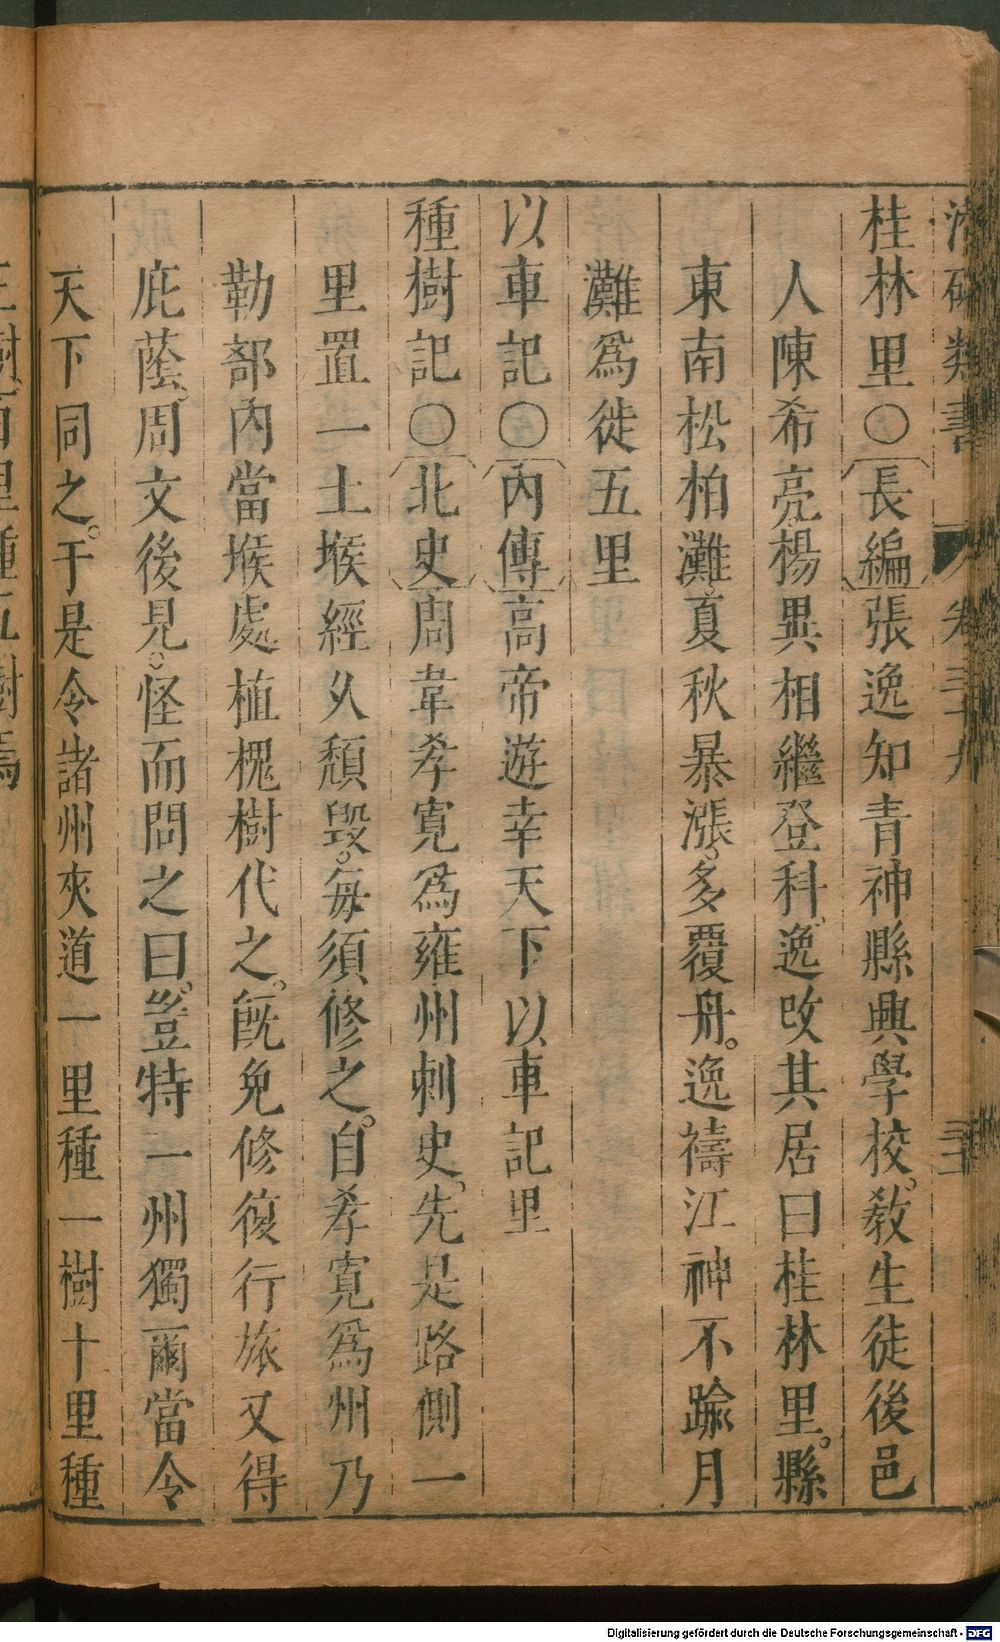 潛確類書 卷三十九 三三
桂林里○長編張逸知青神縣興學校。教生徒後邑
人陳希亮。楊異相繼登科。逸改其居曰桂林里。縣
東南松柏灘。夏秋暴漲。多覆舟。逸禱江神不踰月
灘爲徙五里
以車記○內傳高帝遊幸天下以車記里
種樹記○北史周韋孝寬爲雍州刺史。先是路側一
里置一土堠經久頹毀。每須修之。自孝寬爲州乃
勒部內當堠處植槐樹代之。旣免修復行旅又得
庇蔭。周文後見。怪而問之曰。豈特一州獨爾當令
天下同之。于是令諸州夾道一里種一樹十里種
三樹百里種五樹焉
Digitalisierung gefördert durch die Deutsche Forschungsgemeinschaft - DFG